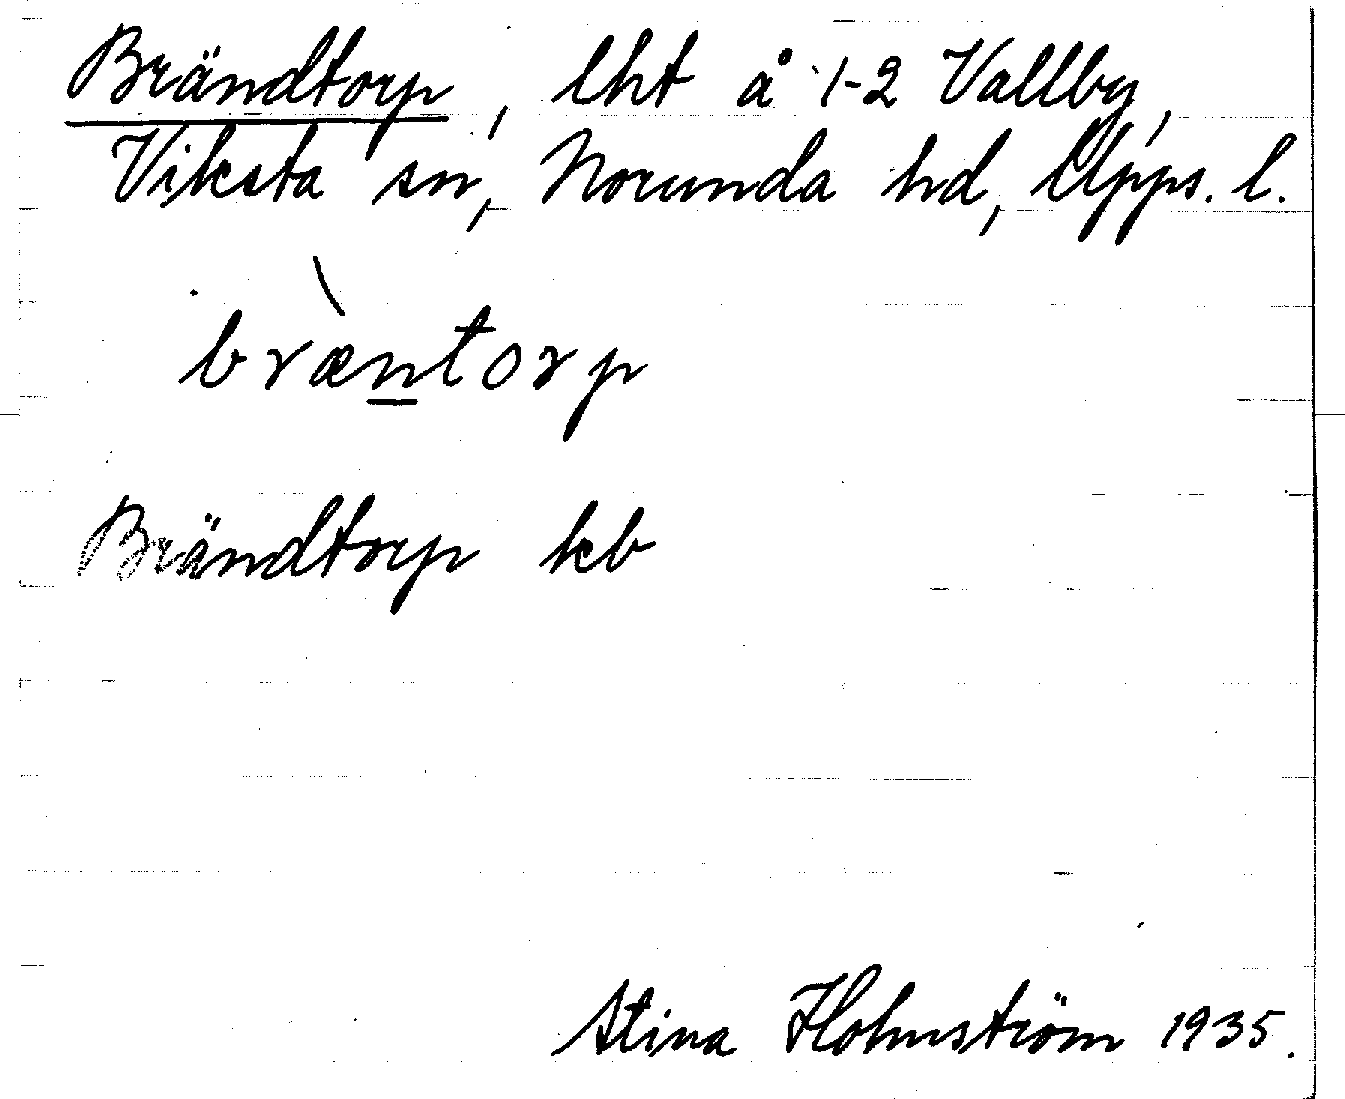 Brändtorp, lht å 1-2 Vallby,
Viksta sn, Norunda hd, Upps. l.
bræ̀ntorp
Brändtorp kb
Stina Holmström 1935.